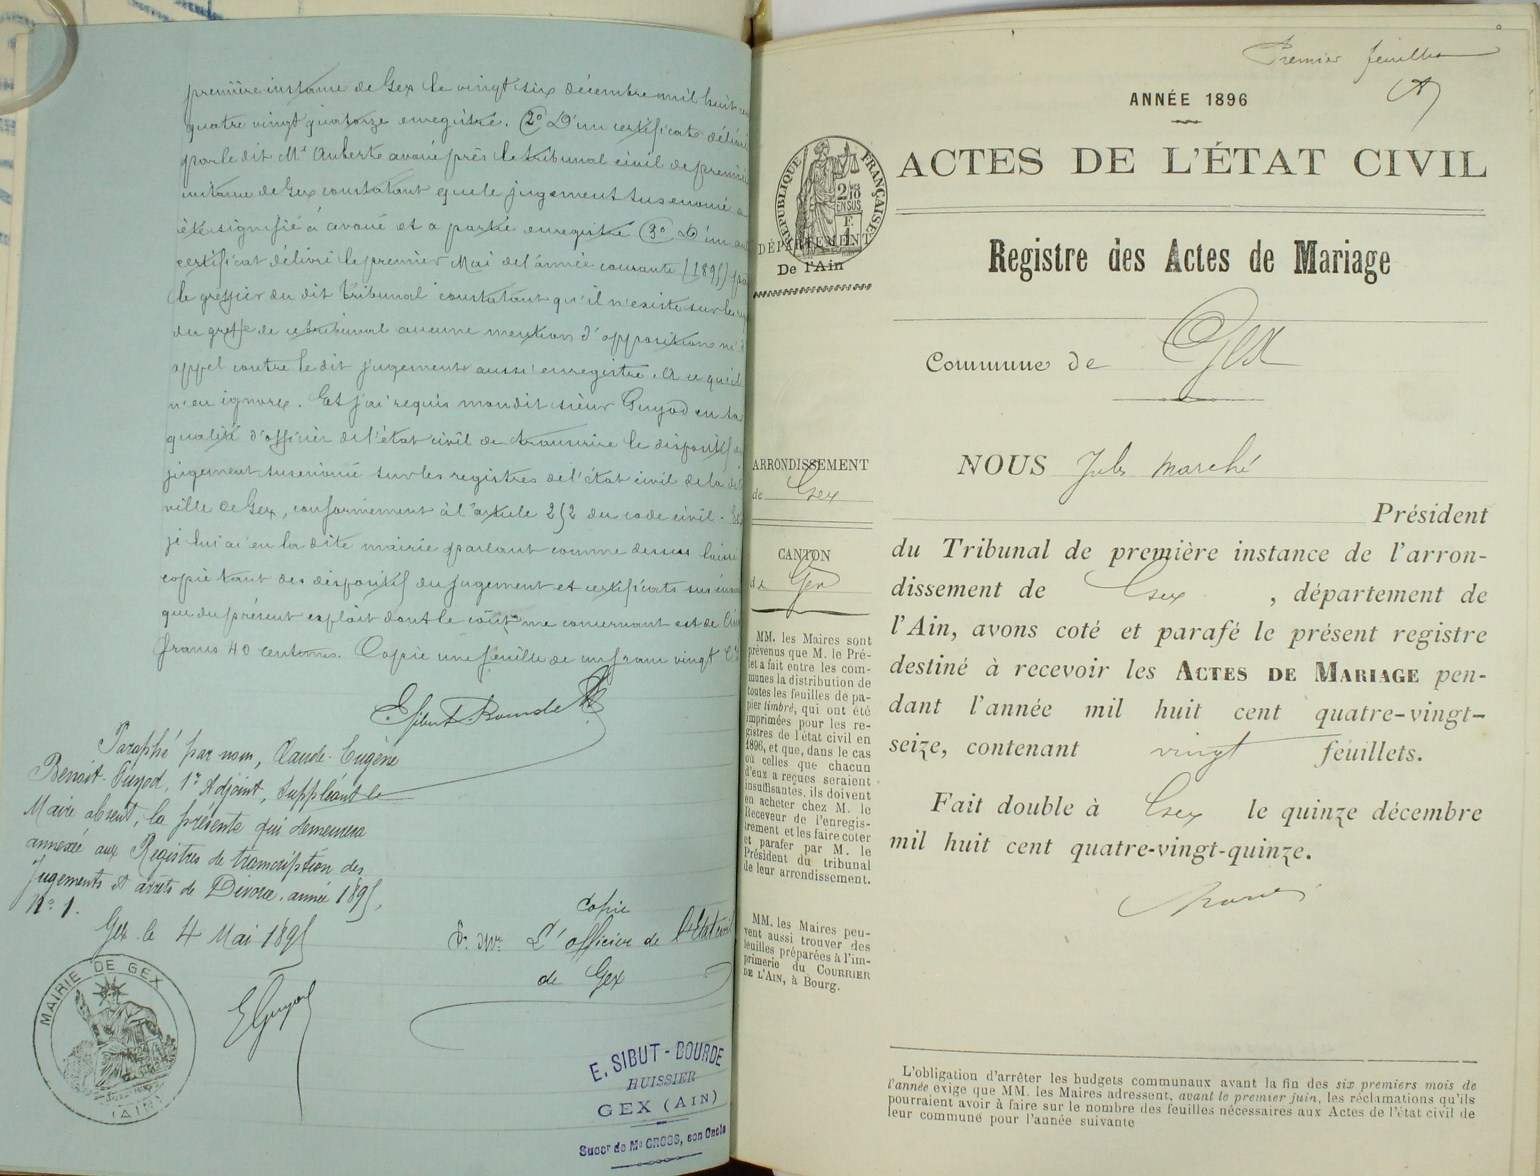 première instance de Gex le vingt six décembre mil huit cent
quatre vingt quatorze enregistré. 2° D'un certificat délivré
par le dit Me Auberte avoué près le tribunal civil de première
instance de Gex constatant que le jugement susenomé a
été signifié à avoué et a partie enregistré 3° D'un
certificat délivré le premier Mai de l'année courante (1895) par
le greffier du dit tribunal constatant qu'il n'existe sur les
du greffe de ce tribunal aucune mention d'opposition ni d'
appel contre le dit jugement aussi enregistré. A ce qu'il
n'en ignore. Et j'ai requis mondit sieur Guyod en sa
qualité d'officier de l'état civil de transcrire le dispositif du
jugement susenomé sur les registres de l'état civil de la dite
ville de Gex, conformément à l'article 252 du code civil. Et
je lui ai en la dite mairie parlant comme dessus laissé
copie tant des dispositif du jugement et certificats sus
que du présent exploit dont le coût me concernant est de cinq
francs 40 centimes. Copie une feuille de un franc vingt Ces
E Sibut Bourde
Paraphé par nous, Claude-Eugène
Benoit-Guyod, 1er Adjoint, suppléant le
Maire absent, la présente qui demeurera
annexée aux Registres de transcription des
Jugements et arrêts de Divorce. année 1895,
No 1.
Gex le 4 Mai 1895
E Guyod
MAIRIE DE GEX
(AIN)
copie
L'officier de l'Etat civil
de Gex
E. SIBUT-BOURDE
HUISSIER
GEX (AIN)
Succr de Me GROSS, son Oncle
Premier feuillet
ANNÉE 1896
ACTES DE L'ÉTAT CIVIL
RÉPUBLIQUE FRANÇAISE
DÉPARTEMENT
De l'Ain
Registre des Actes de Mariage
Commune de Gex
ARRONDISSEMENT
de Gex
CANTON
de Gex
MM. les Maires sont
prévenus que M. le Pré-
fet a fait entre les com-
munes la distribution de
toutes les feuilles de pa-
pier timbré, qui ont été
imprimées pour les re-
gistres de l'état civil en
1896, et que, dans le cas
où celles que chacun
d'eux a reçues seraient
insuffisantes, ils doivent
en acheter chez M. le
Receveur de l'enregis-
trement et les faire coter
et parafer par M. le
Président du tribunal
de leur arrondissement.
MM. les Maires peu-
vent aussi trouver des
feuilles préparées à l'im-
primerie du COURRIER
DE L'AIN, à Bourg.
NOUS Jules Marché
Président
du Tribunal de première instance de l'arron-
dissement de Gex, département de
l'Ain, avons coté et parafé le présent registre
destiné à recevoir les ACTES DE MARIAGE pen-
dant l'année mil huit cent quatre-vingt-
seize, contenant vingt feuillets.
Fait double à Gex le quinze décembre
mil huit cent quatre-vingt-quinze.
L'obligation d'arrêter les budgets communaux avant la fin des six premiers mois de
l'année exige que MM. les Maires adressent, avant le premier juin, les réclamations qu'ils
pourraient avoir à faire sur le nombre des feuilles nécessaires aux Actes de l'état civil de
leur commune pour l'année suivante